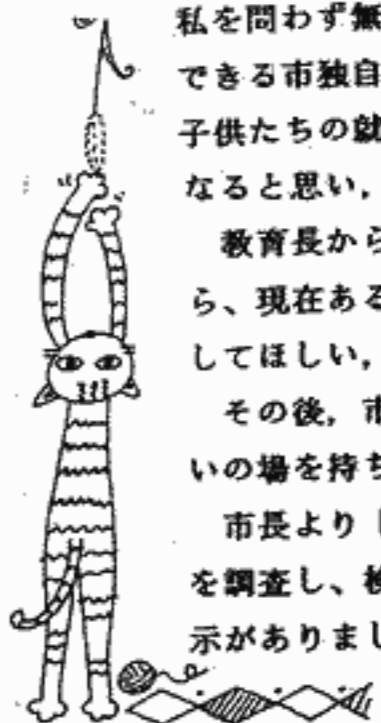 私を問わず無
できる市独自
子供たちの就
なると思い,
教育長から
ら、現在ある
してほしい,
その後,市
いの場を持ち
市長より「
を調査し、検
示がありまし